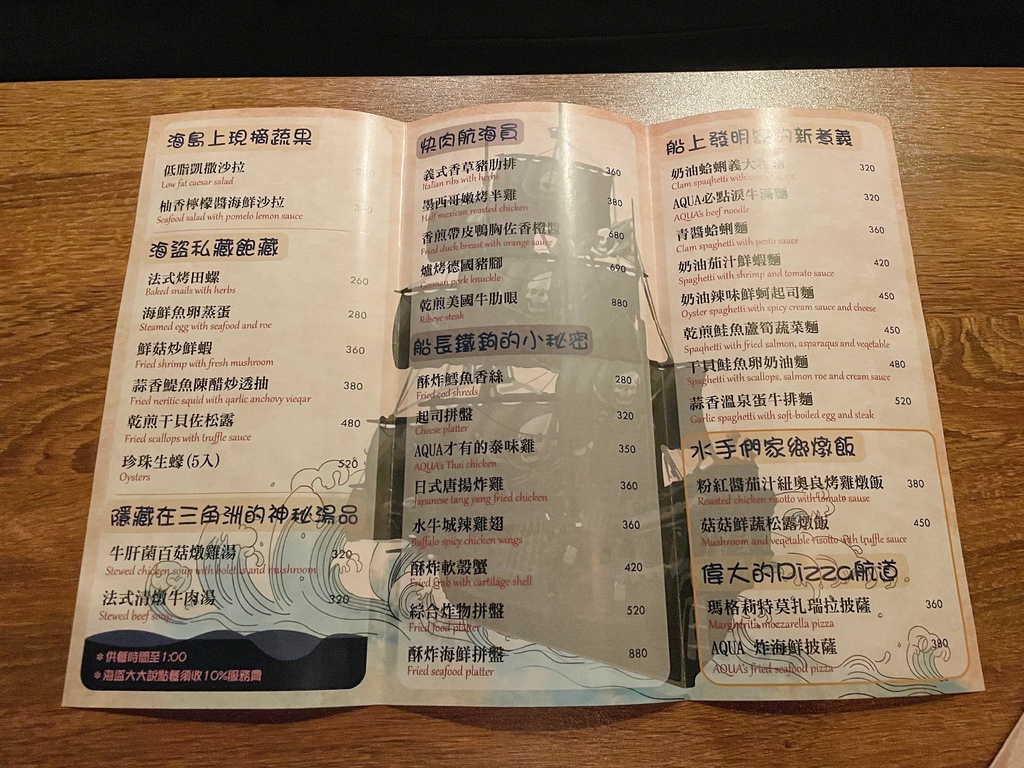 海島上現摘蔬果
低脂凱撒沙拉
Low fat caesar salad
柚香檸檬醬海鮮沙拉
Seafood salad with pomelo lemon sauce
海盜私藏飽藏
法式烤田螺 260
Baked snails with herbs
海鮮魚卵蒸蛋 280
Steamed egg with seafood and roe
鮮菇炒鮮蝦 360
Fried shrimp with fresh mushroom
蒜香鯷魚陳醋炒透抽 380
Fried neritic squid with garlic anchovy vieqar
乾煎干貝佐松露 480
Fried scallops with truffle sauce
珍珠生蠔(5入) 520
Oysters
隱藏在三角洲的神秘湯品
牛肝菌百菇燉雞湯 320
Stewed chicken soup with boletus and mushroom
法式清燉牛肉湯 320
Stewed beef soup
※供餐時間至1:00
※海盜大大說點餐須收10%服務費
快肉航海員
義式香草豬肋排 360
Italian ribs with herbs
墨西哥嫩烤半雞 380
Half mexican roasted chicken
香煎帶皮鴨胸佐香橙醬 680
Fried duck breast with orange sauce
爐烤德國豬腳 690
German pork knuckle
乾煎美國牛肋眼 880
Ribeye steak
船長鐵鉤的小秘密
酥炸鱈魚香絲 280
Fried cod shreds
起司拼盤 320
Cheese platter
AQUA才有的泰味雞 350
AQUA's Thai chicken
日式唐揚炸雞 360
Japanese tang yang fried chicken
水牛城辣雞翅 360
Buffalo spicy chicken wings
酥炸軟殼蟹 420
Fried crab with cartilage shell
綜合炸物拼盤 520
Fried food platter
酥炸海鮮拼盤 880
Fried seafood platter
船上發明家的新煮義
奶油蛤蜊義大利麵 320
Clam spaghetti with cream sauce
AQUA必點淚牛滿麵 320
AQUA's beef noodle
青醬蛤蜊麵 360
Clam spaghetti with pesto sauce
奶油茄汁鮮蝦麵 420
Spaghetti with shrimp and tomato sauce
奶油辣味鮮蚵起司麵 450
Oyster spaghetti with spicy cream sauce and cheese
乾煎鮭魚蘆筍蔬菜麵 450
Spaghetti with fried salmon, asparagus and vegetable
干貝鮭魚卵奶油麵 480
Spaghetti with scallops, salmon roe and cream sauce
蒜香溫泉蛋牛排麵 520
Garlic spaghetti with soft-boiled egg and steak
水手們家鄉燉飯
粉紅醬茄汁紐奧良烤雞燉飯 380
Roasted chicken risotto with tomato sause
菇菇鮮蔬松露燉飯 450
Mushroom and vegetable risotto with truffle sauce
偉大的Pizza航道
瑪格莉特莫扎瑞拉披薩 360
Margherita mozzarella pizza
AQUA 炸海鮮披薩 380
AQUA's fried seafood pizza